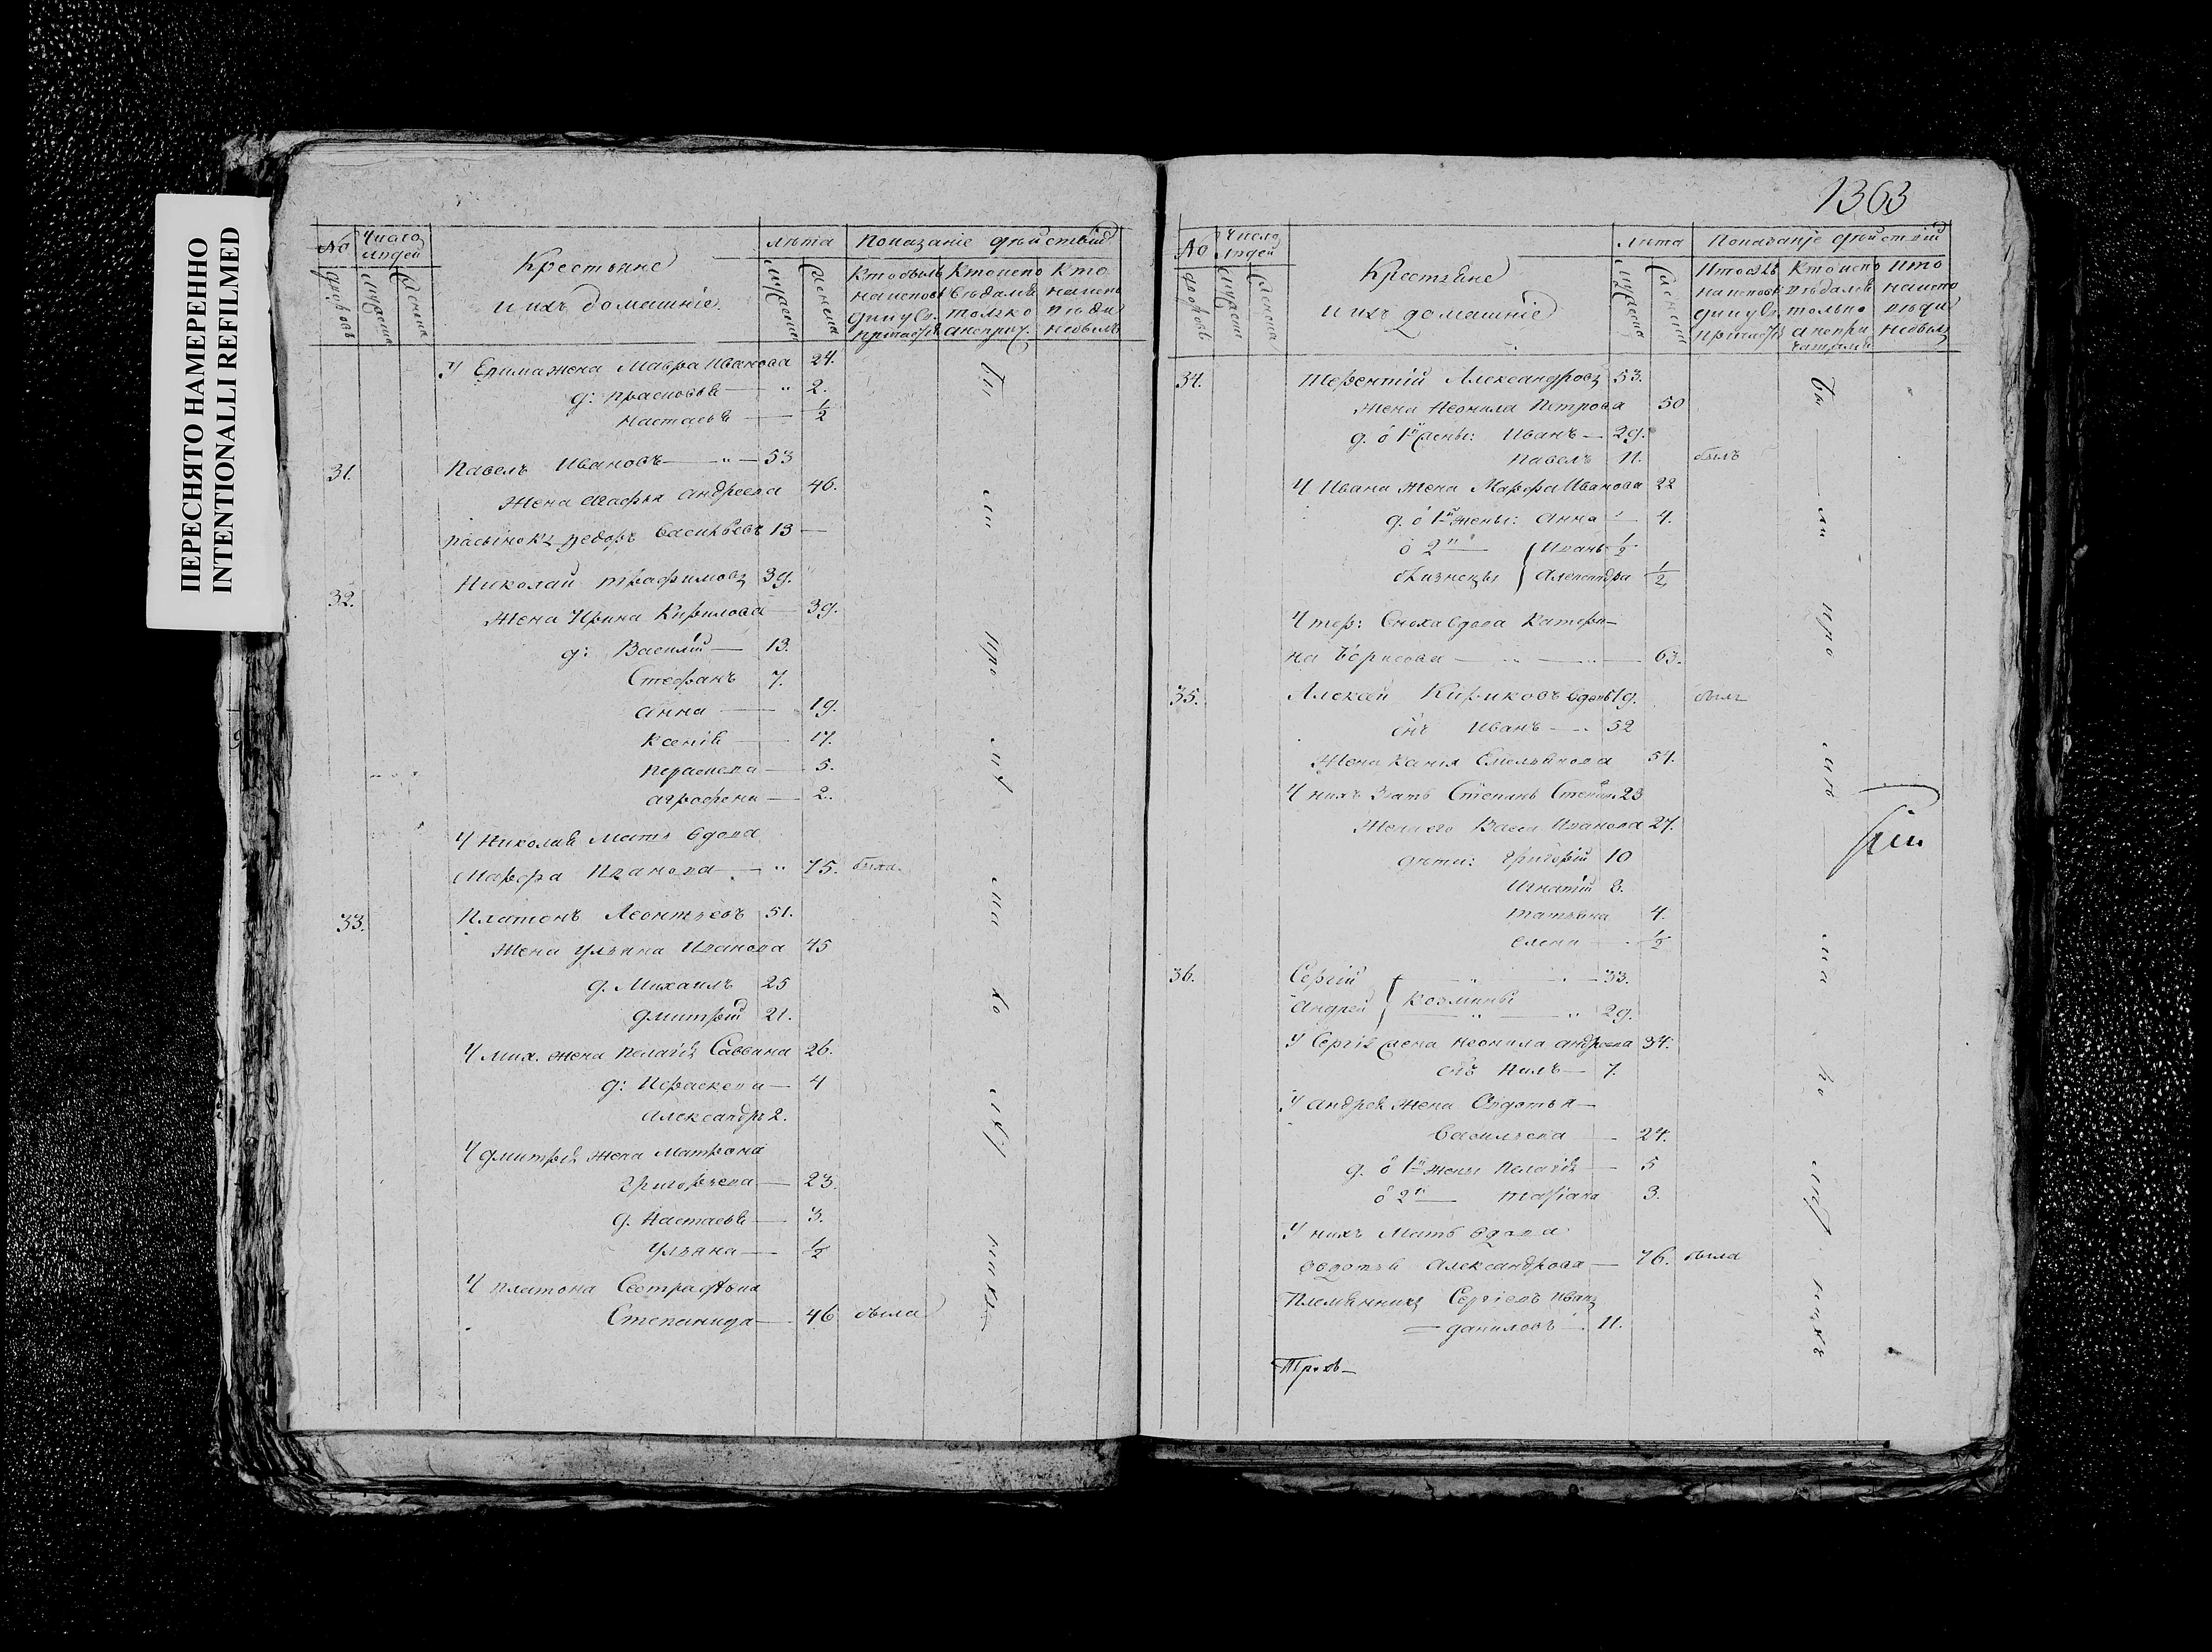 ПЕРЕСНЯТО НАМЕРЕННО
INTENTIONALLI REFILMED
№ дворовъ
Число людей
Мужеска
Женска
Крестьяне
и ихъ домашніе
лѣта
Мужеска
Женска
Показаніе дѣйствій
Кто былъ
на испов
Кто испо
вѣдалъ
только
Кто
на испо
вѣди
небылъ
У Ефима жена Мавра Иванова 24.
д: Прасковья 2.
Настасья ½
31. Павелъ Ивановъ 53
Жена Агафья Андреева 46.
пасынокъ Федоръ Васильевъ 13
32. Николай Трафимовъ 39.
Жена Ирина Кирилова 39.
д: Василій 13.
Стефанъ 7.
Анна 19.
Ксенія 17.
Параскева 5.
Агрофена 2.
У Николая Мать вдова
Марфа Иванова 75. была.
33. Платонъ Леонтьевъ 51.
Жена Ульяна Иванова 45
д. Михаилъ 25
Дмитрій 21.
У Мих. жена Пелагія Саввина 26.
д: Параскева 4
Александръ 2.
У Дмитрія жена Матрона
Григорьева 23.
д. Настасья 3.
Ульяна ½
У Платона Сестра
Степанида 46 была
1363
№ дворовъ
Число людей
Мужеска
Женска
Крестьяне
и ихъ домашніе
лѣта
Мужеска
Женска
Показаніе дѣйствій
Кто испо
вѣдалъ
только
а непри
частился
на испо
вѣди
небылъ
34. Терентій Александровъ 53.
Жена Неонила Петрова 50
д. ѿ 1й жены: Иванъ 29.
Павелъ 11. былъ
У Ивана жена Марфа Иванова 22
д. ѿ 1й жены: Анна 4.
ѿ 2й Иванъ ½
близнецы Александра ½
У тер: Сноха вдова Катери-
на Борисова 63.
35. Алексей Кириковъ вдовъ 79. былъ
сн̃ъ Иванъ 52
Жена Ксенія Емельянова 51.
У нихъ Зять Степанъ 23
Жена его Васса Иванова 27.
дѣти: Григорій 10
Игнатій 8.
Татьяна 4.
Елена ½
36. Сергій 33.
Андрей Козмины 29.
У Сергія жена Неонила Андреева 34.
сн̃ъ Нилъ 7.
У Андрея жена Евдотья
Васильева 24.
д. ѿ 1й жены Пелагія 5
ѿ 2й 3.
У нихъ Мать вдова
Александрова 76. была
Племянникъ Сергіевъ Иванъ
Даниловъ 11.